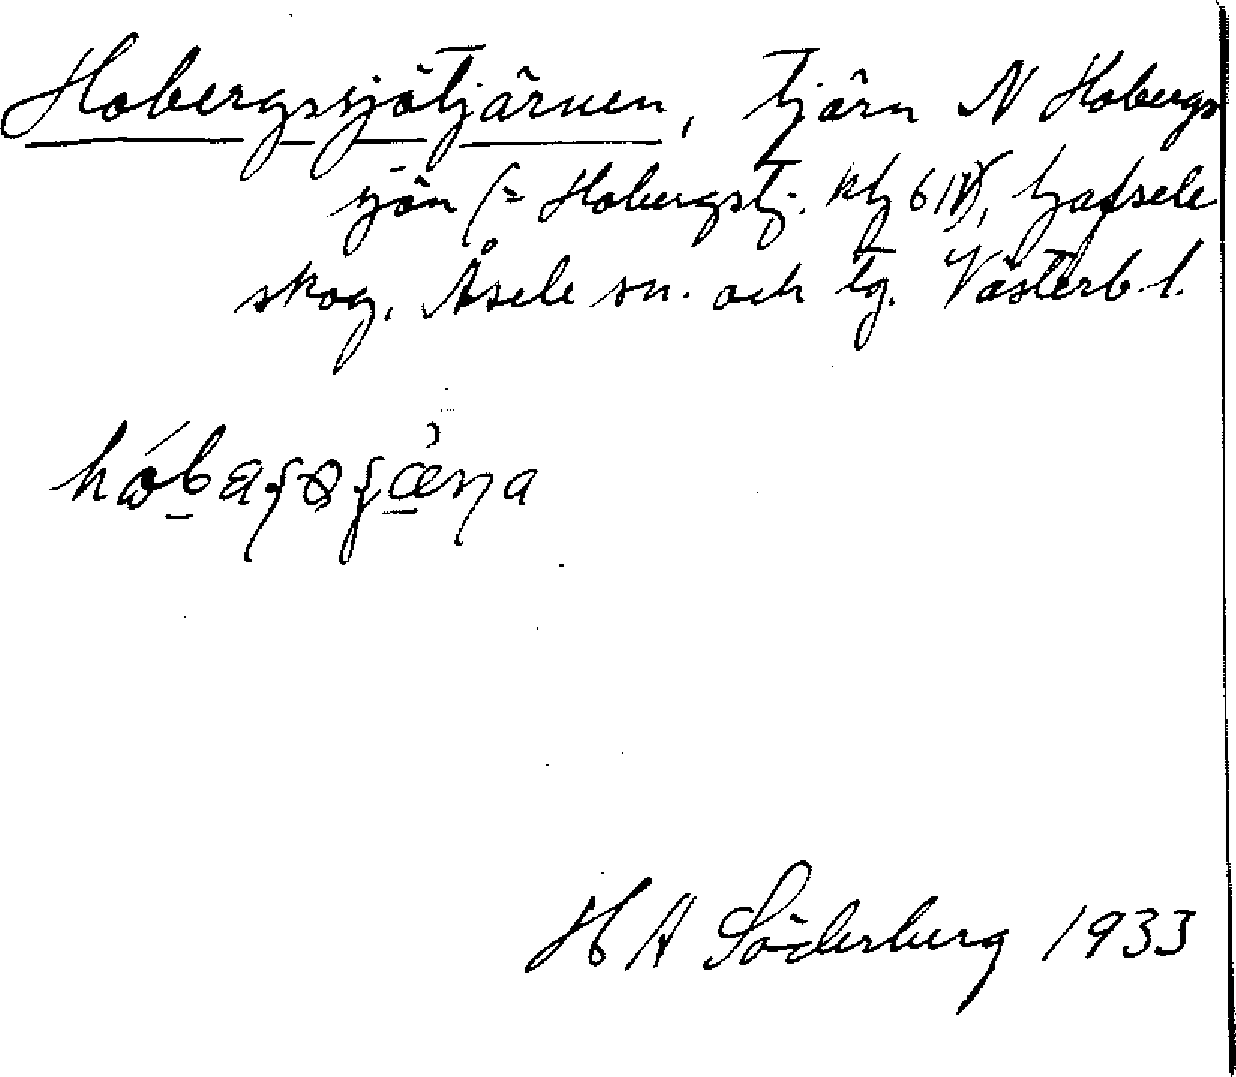 Hobergssjötjärnen, tjärn N Hobergs
sjön (= Hobergstj. kbl 61 V), Gafsele
skog, Åsele sn. och tg. Västerb l.
H Ä Söderberg 1933